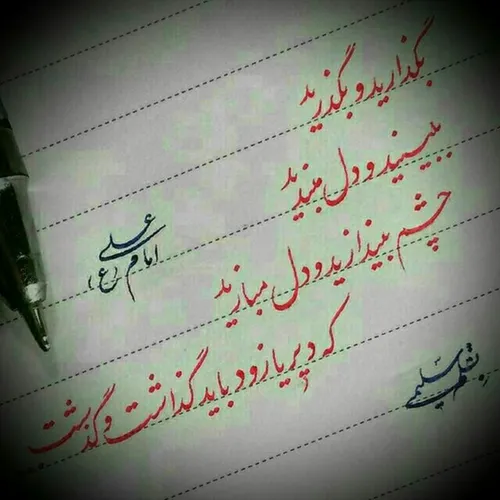 بگذارید و بگذرید
ببینید و دل مبندید
چشم بیندازید و دل مبازید
که دیر یا زود باید گذاشت و گذشت
امام علی (ع)
بقلم سلیمی